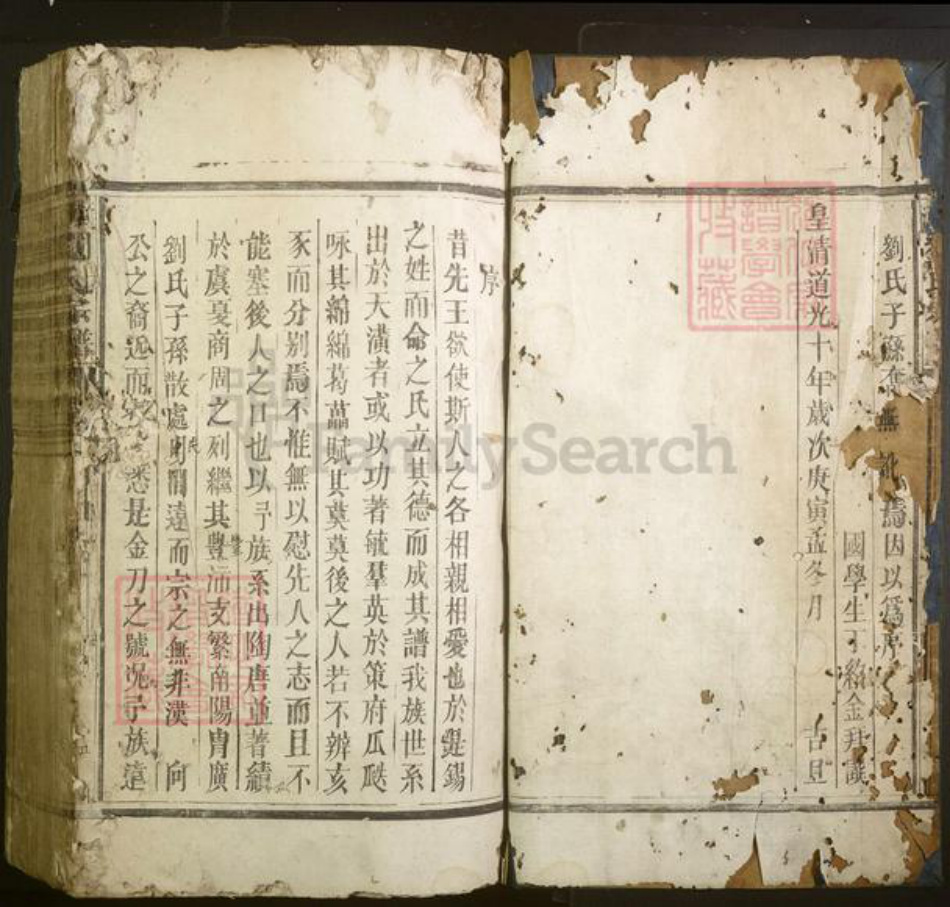 劉氏子孫庶無訛焉因以爲序
國學生丁 金拜識
皇清道光十年歲次庚寅孟冬月 吉旦
序
昔先王欲使斯人之各相親相愛也於是錫
之姓而命之氏立其德而成其譜我族世系
出於天潢者或以功著毓羣英於策府瓜瓞
咏其綿綿葛藟賦其莫莫後之人若不辨亥
豕而分别焉不惟無以慰先人之志而且不
能塞後人之口也以予族系出陶唐並著績
於虞夏商周之列繼其豐沛支繁南陽胄廣
劉氏子孫散處 遠而宗之無非漢 向
公之裔近而 悉是金刀之號况予族遠
FamilySearch